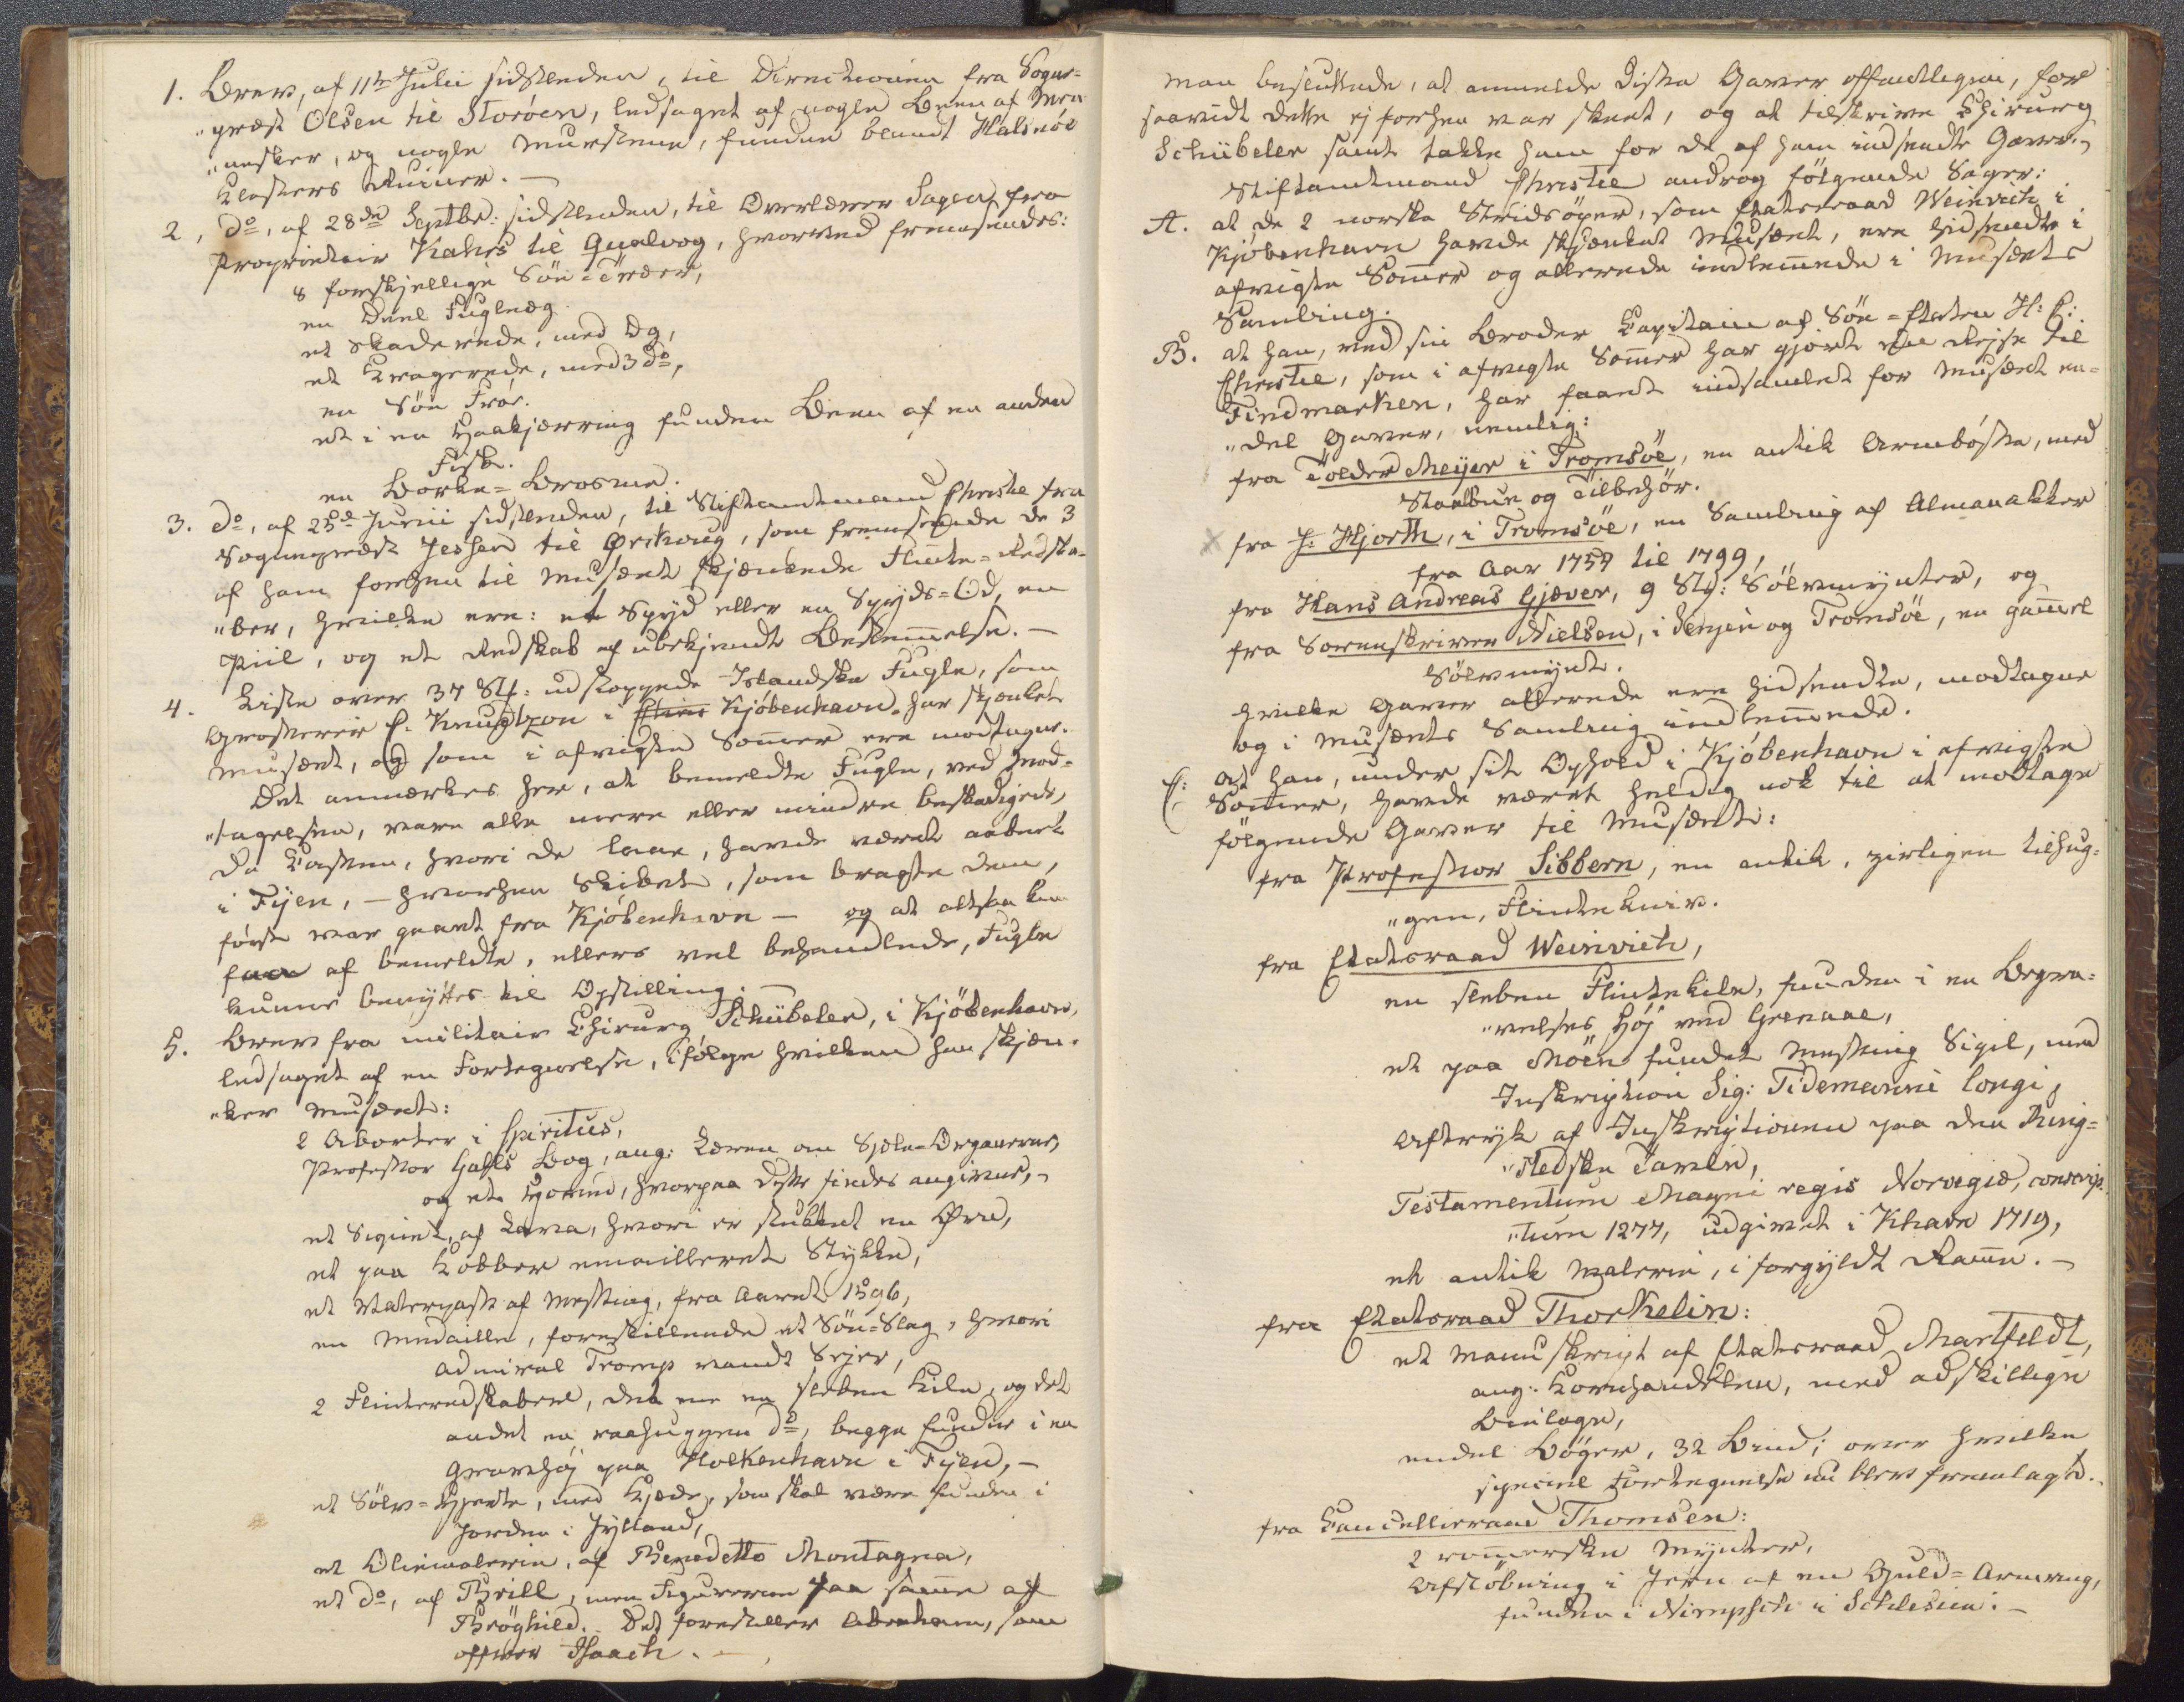 1. Brev, af 11te Julii sidstleden, til Directionen fra Sogne=
„præst Olsen til Storöen, ledsaget af nogle Been af Men
„nesker, og nogle Muurstene, fundne blandt Halsnöe
Klosters Ruiner. —
2, do, af 28de Septbr: sidstleden, til Overlærer Sagen, fra
Proprietair Kahrs til Qualvog, hvorved fremsendes:
8 forskjellige Sön-Træer,
en Deel Fugleæg
et Skaderede, med Æg,
et Kragerede, med 3 do,
en Söe Froe.
et i en Haakjærring funden Been af en anden
Fisk.
en Borke=Brosme.
3. do, af 25de Junii sidstleden, til Stiftamtmand Christie fra
Sognepræst Jessen til Ørskoug, som fremsendte de 3
af ham forhen til Musæet skjænkede Flinte=Redska-
„ber, hvilke ere: et Spyd eller en Spyds=Od, en
Piil, og et Redskab af ubekjendt Bestemmelse. —
4. Liste over 37 St: udstoppede Islandske Fugle, som
Grosserer C. Knudtzon i Kjöbenhavn har skjænket
Musæet, og som i afvigte Sommer ere modtagne.
Det anmærkes her, at bemeldte Fugle, ved Mod-
„tagelsen, vare alle mere eller mindre beskadigede,
da Kassen, hvori de laae, havde været aabnet
i Fyen, — hvorhen Skibet, som bragte dem,
först var gaaet fra Kjöbenhavn — og at altsaa kun
faa af bemeldte, ellers vel behandlede, Fugle
kunne benyttes til Opstilling. —
5. Brev fra militair Chirurg Schübeler, i Kjöbenhavn,
ledsaget af en Fortegnelse, ifölge hvilken han skjæn-
„ker Musæet:
2 Aborter i Spiritus,
Professor Galls Bog, ang: Læren om Sjæle-Organerne,
og et Hoved, hvorpaa disse findes angivne, -
et Signet, af Lava, hvori er stukket en Ørn,
et paa Kobber emailleret Stykke,
et Vaterpass af Messing, fra Aaret 1596,
en Medaille, forestillende et Söe=Slag, hvori
Admiral Tromp vandt Sejer,
2 Flinteredskaber, det ene en sleben Kile, og det
andet en raahuggen do, begge fundne i en
Gravhöj paa Holkenhavn i Fyen, —
et Sölv=Hjerte, med Kjæde, som skal være funden i
Jorden i Jylland,
et Oliemalerie, af Benedetto Montagna,
et do, af Brill, men Figurerne paa samme af
Bröghild. Det forestiller Abraham, som
offrer Isaach. —
man besluttede, at anmelde disse Gaver offentligen, for
saavidt dette ej forhen var skeet, og at tilskrive Chirurg
Schübeler samt takke ham for de af ham indsendte Gaver. -
Stiftamtmand Christie androg fölgende Sager:
A. at de 2 norske Stridsöxer, som Etatsraad Weinvich i
Kjöbenhavn havde skjænket Musæet, ere hidsendte i
afvigte Sommer og allerede indlemmede i Musæets
Samling.
B. at han, ved sin Broder Capitain af Söe=Etaten H: C:
Christie, som i afvigte Sommer har gjort en Rejse til
Findmarken, har faaet indsamlet for Musæet en-
„del Gaver, nemlig:
fra Tolder Meyer i Tromsöe, en antik Armböste, med
Staalbue og Tilbehör.
fra J. Hjorth, i Tromsöe, en Samling af Almanakker
fra Aar 1757 til 1799,
fra Hans Andreas Gjæver, 9 St: Sölvmynter, og
fra Sorenskriver Nielsen, i Senjen og Tromsöe, en gammel
Sölvmynt.
hvilke Gaver allerede ere hidsendte, modtagne
og i Musæets Samling indlemmede.
C: at han, under sit Ophold i Kjöbenhavn i afvigte
Sommer, havde været heldig nok til at modtage
fölgende Gaver til Musæet:
fra Professor Sibbern, en antik, zirligen tilhug-
„gen, Flintekniv.
fra Etatsraad Weinvich,
en sleben Flintekile, funden i en Begra-
„velses Höj ved Grenaae,
et paa Möen fundet Messing Sigil, med
Inskription Sig: Tidemanni longi,
Aftryk af Inskriptionen paa den Ring-
„stedske Tavle,
Testamentum Magni regis Norvegiæ, conscrip-
„tum 1277, udgivet i Khavn 1719,
et antik Malerie, i forgyldt Ramme. —
fra Etatsraad Thorkelin:
et Manuskript af Etatsraad Martfeldt,
ang: Kornhandelen, med adskillige
Bielage,
endel Böger, 32 Bind; over hvilke
speciel Fortegnelse nu blev fremlagt.
fra Cancelliraad Thomsen:
2 rommerske Mynter,
Afstöbning i Jern af en Guld=Armring,
funden i Nimpsch i Schlesien. —